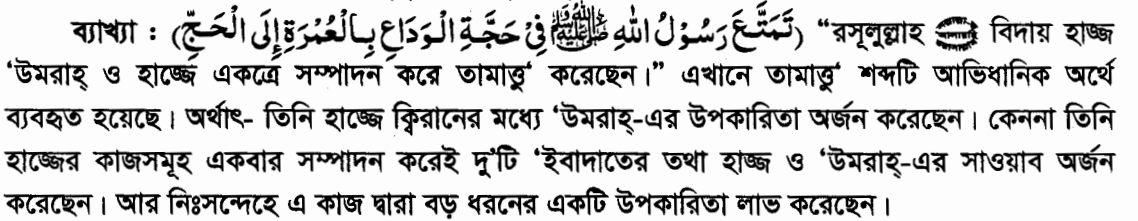 ব্যাখ্যা : (تَمَتَّعَ رَسُوْلُ اللهِ ﷺ فِىْ حَجَّةِ الْوَدَاعِ بِالْعُمْرَةِ إِلَى الْحَجِّ) “রসূলুল্লাহ ﷺ বিদায় হাজ্জ
‘উমরাহ্ ও হাজ্জে একত্রে সম্পাদন করে তামাত্তু‘ করেছেন।” এখানে তামাত্তু‘ শব্দটি আভিধানিক অর্থে
ব্যবহৃত হয়েছে। অর্থাৎ- তিনি হাজ্জে ক্বিরানের মধ্যে ‘উমরাহ্-এর উপকারিতা অর্জন করেছেন। কেননা তিনি
হাজ্জের কাজসমূহ একবার সম্পাদন করেই দু’টি ‘ইবাদাতের তথা হাজ্জ ও ‘উমরাহ্-এর সাওয়াব অর্জন
করেছেন। আর নিঃসন্দেহে এ কাজ দ্বারা বড় ধরনের একটি উপকারিতা লাভ করেছেন।